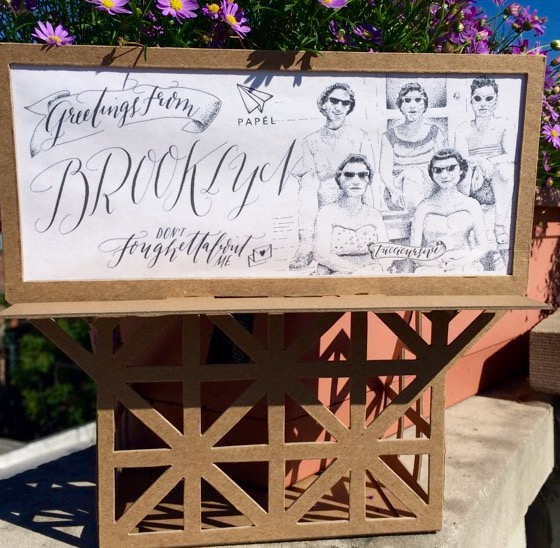 Greetings from
PAPÉL
BROOKLYN
DON'T
foughettabout
ME